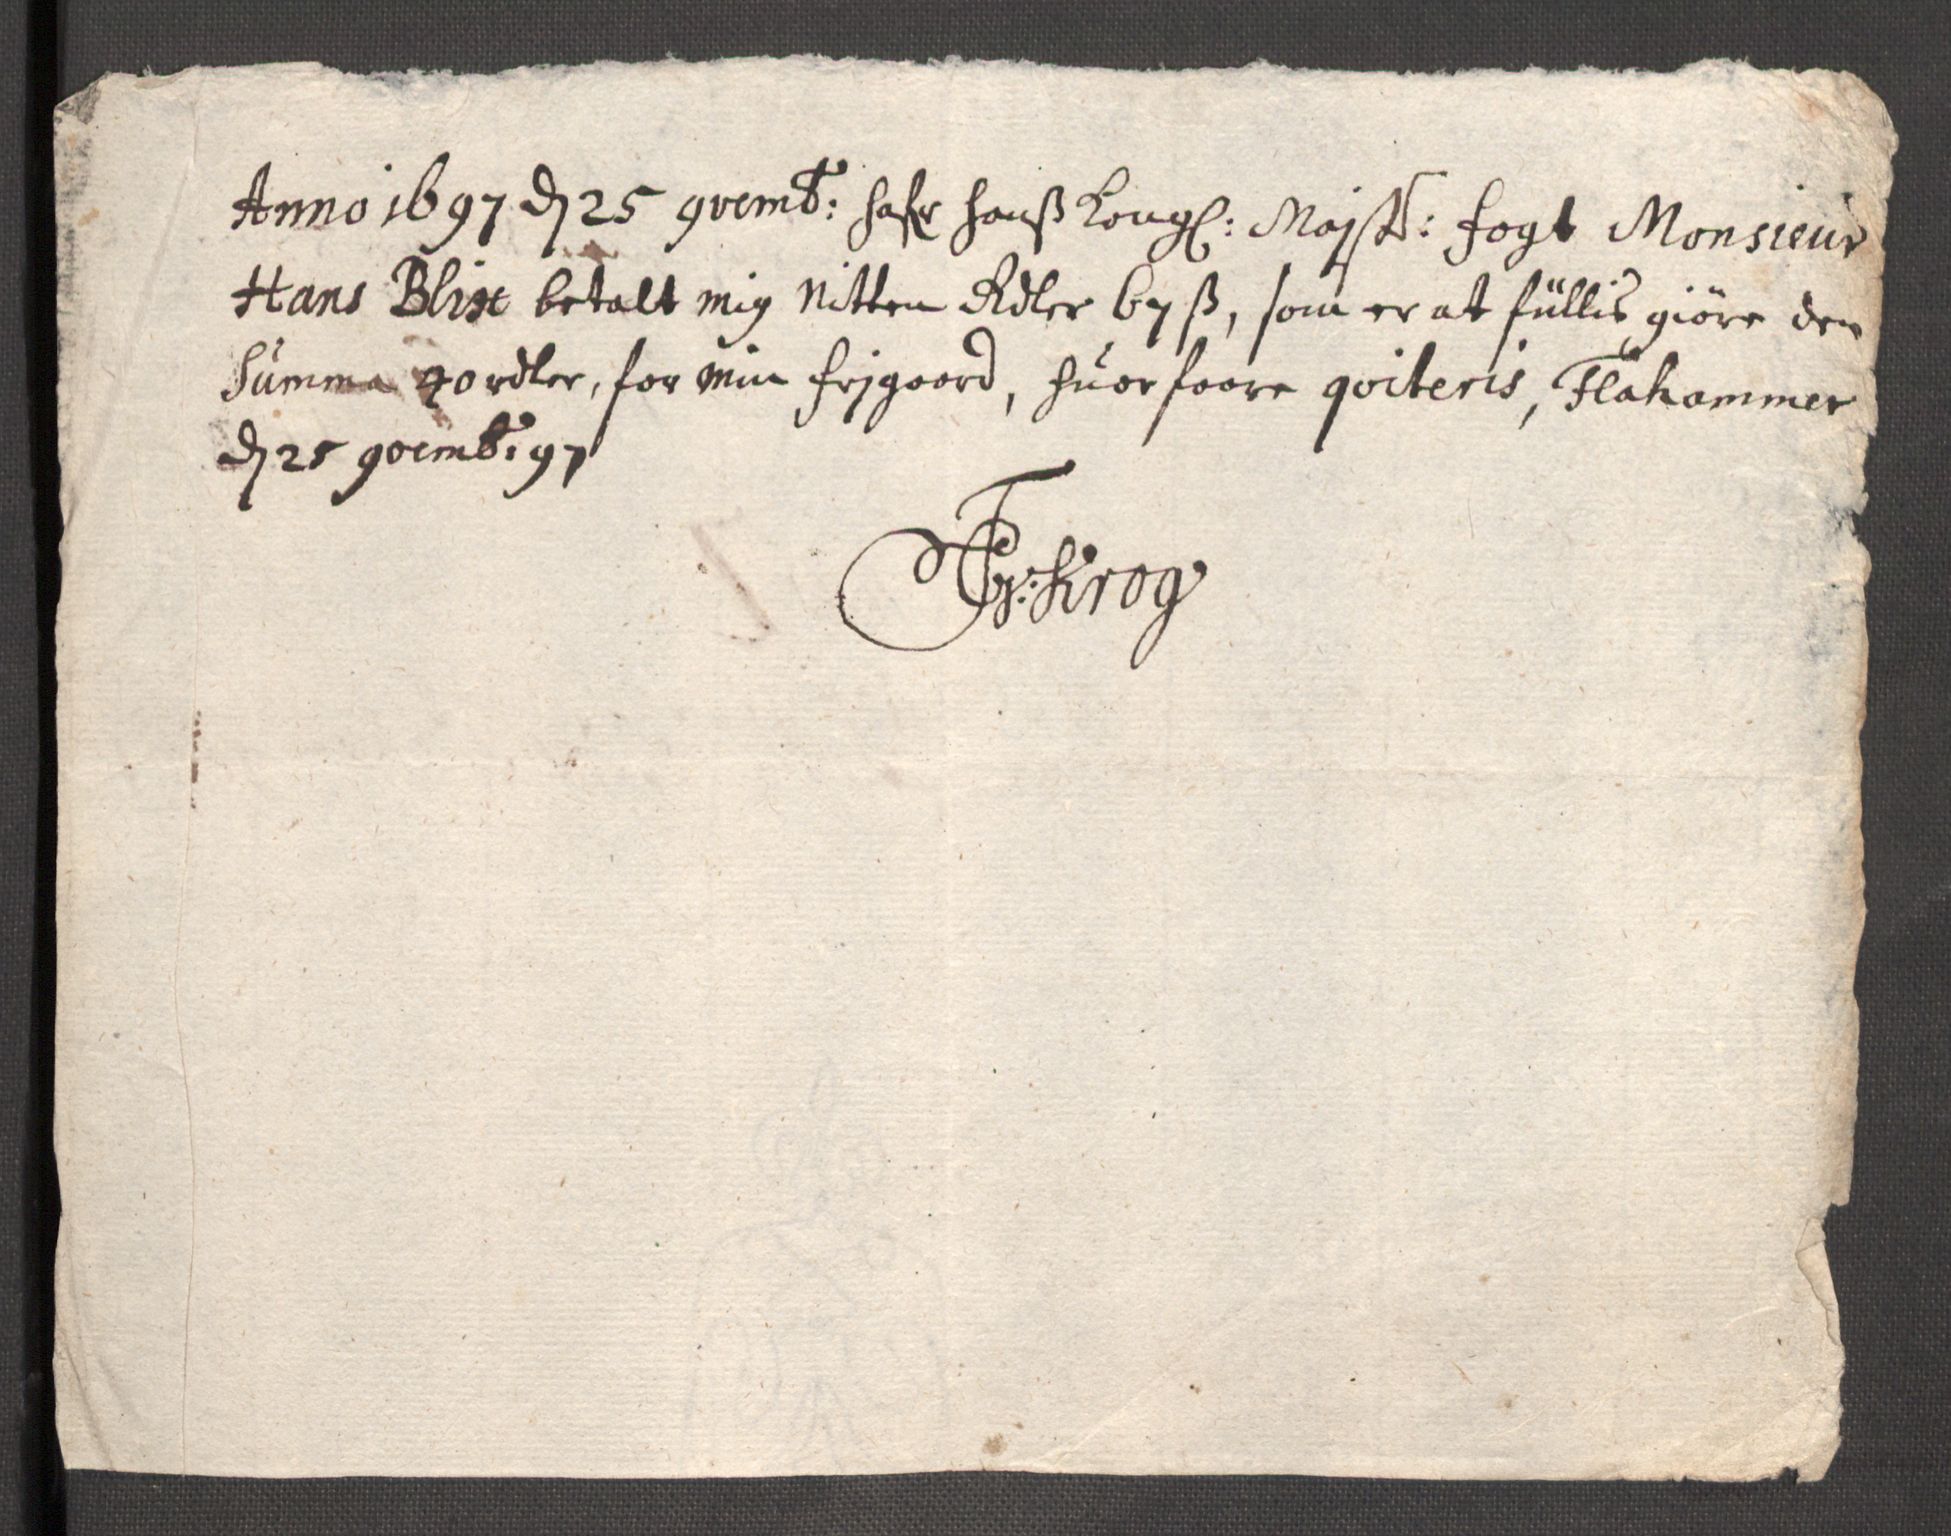 Anno 1697 d 25 9vemb: hafr hanß Kongl: Majst: fogt Monsieur
Hans Blix betalt mig Nitten Rdler 67 ß, som er at füllis giöre den
Summa 40 rdler, for min frjgaard, huorfaare qviteris, Flahammer
d 25 9vemb: 97
Gr: Krog